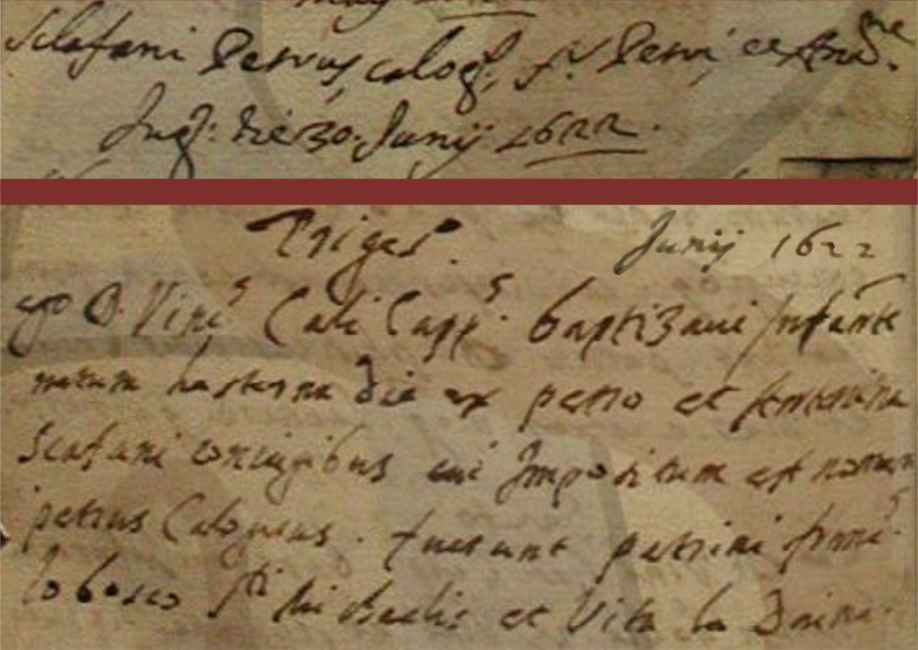 Sclafani Petrus, calog.s, f. Petri, et And.ne
Jugl: die 30. Junij 1622.
Triges.
Junij 1622
ego D. Vinc.s Cali Capp.s baptizaui Infantē
natum hesterna die ex petro et
Scafani coniugibus cui Impositum est nomen
petrus Calogerus. fuerunt patrini
lobosco michaelis et Vita la